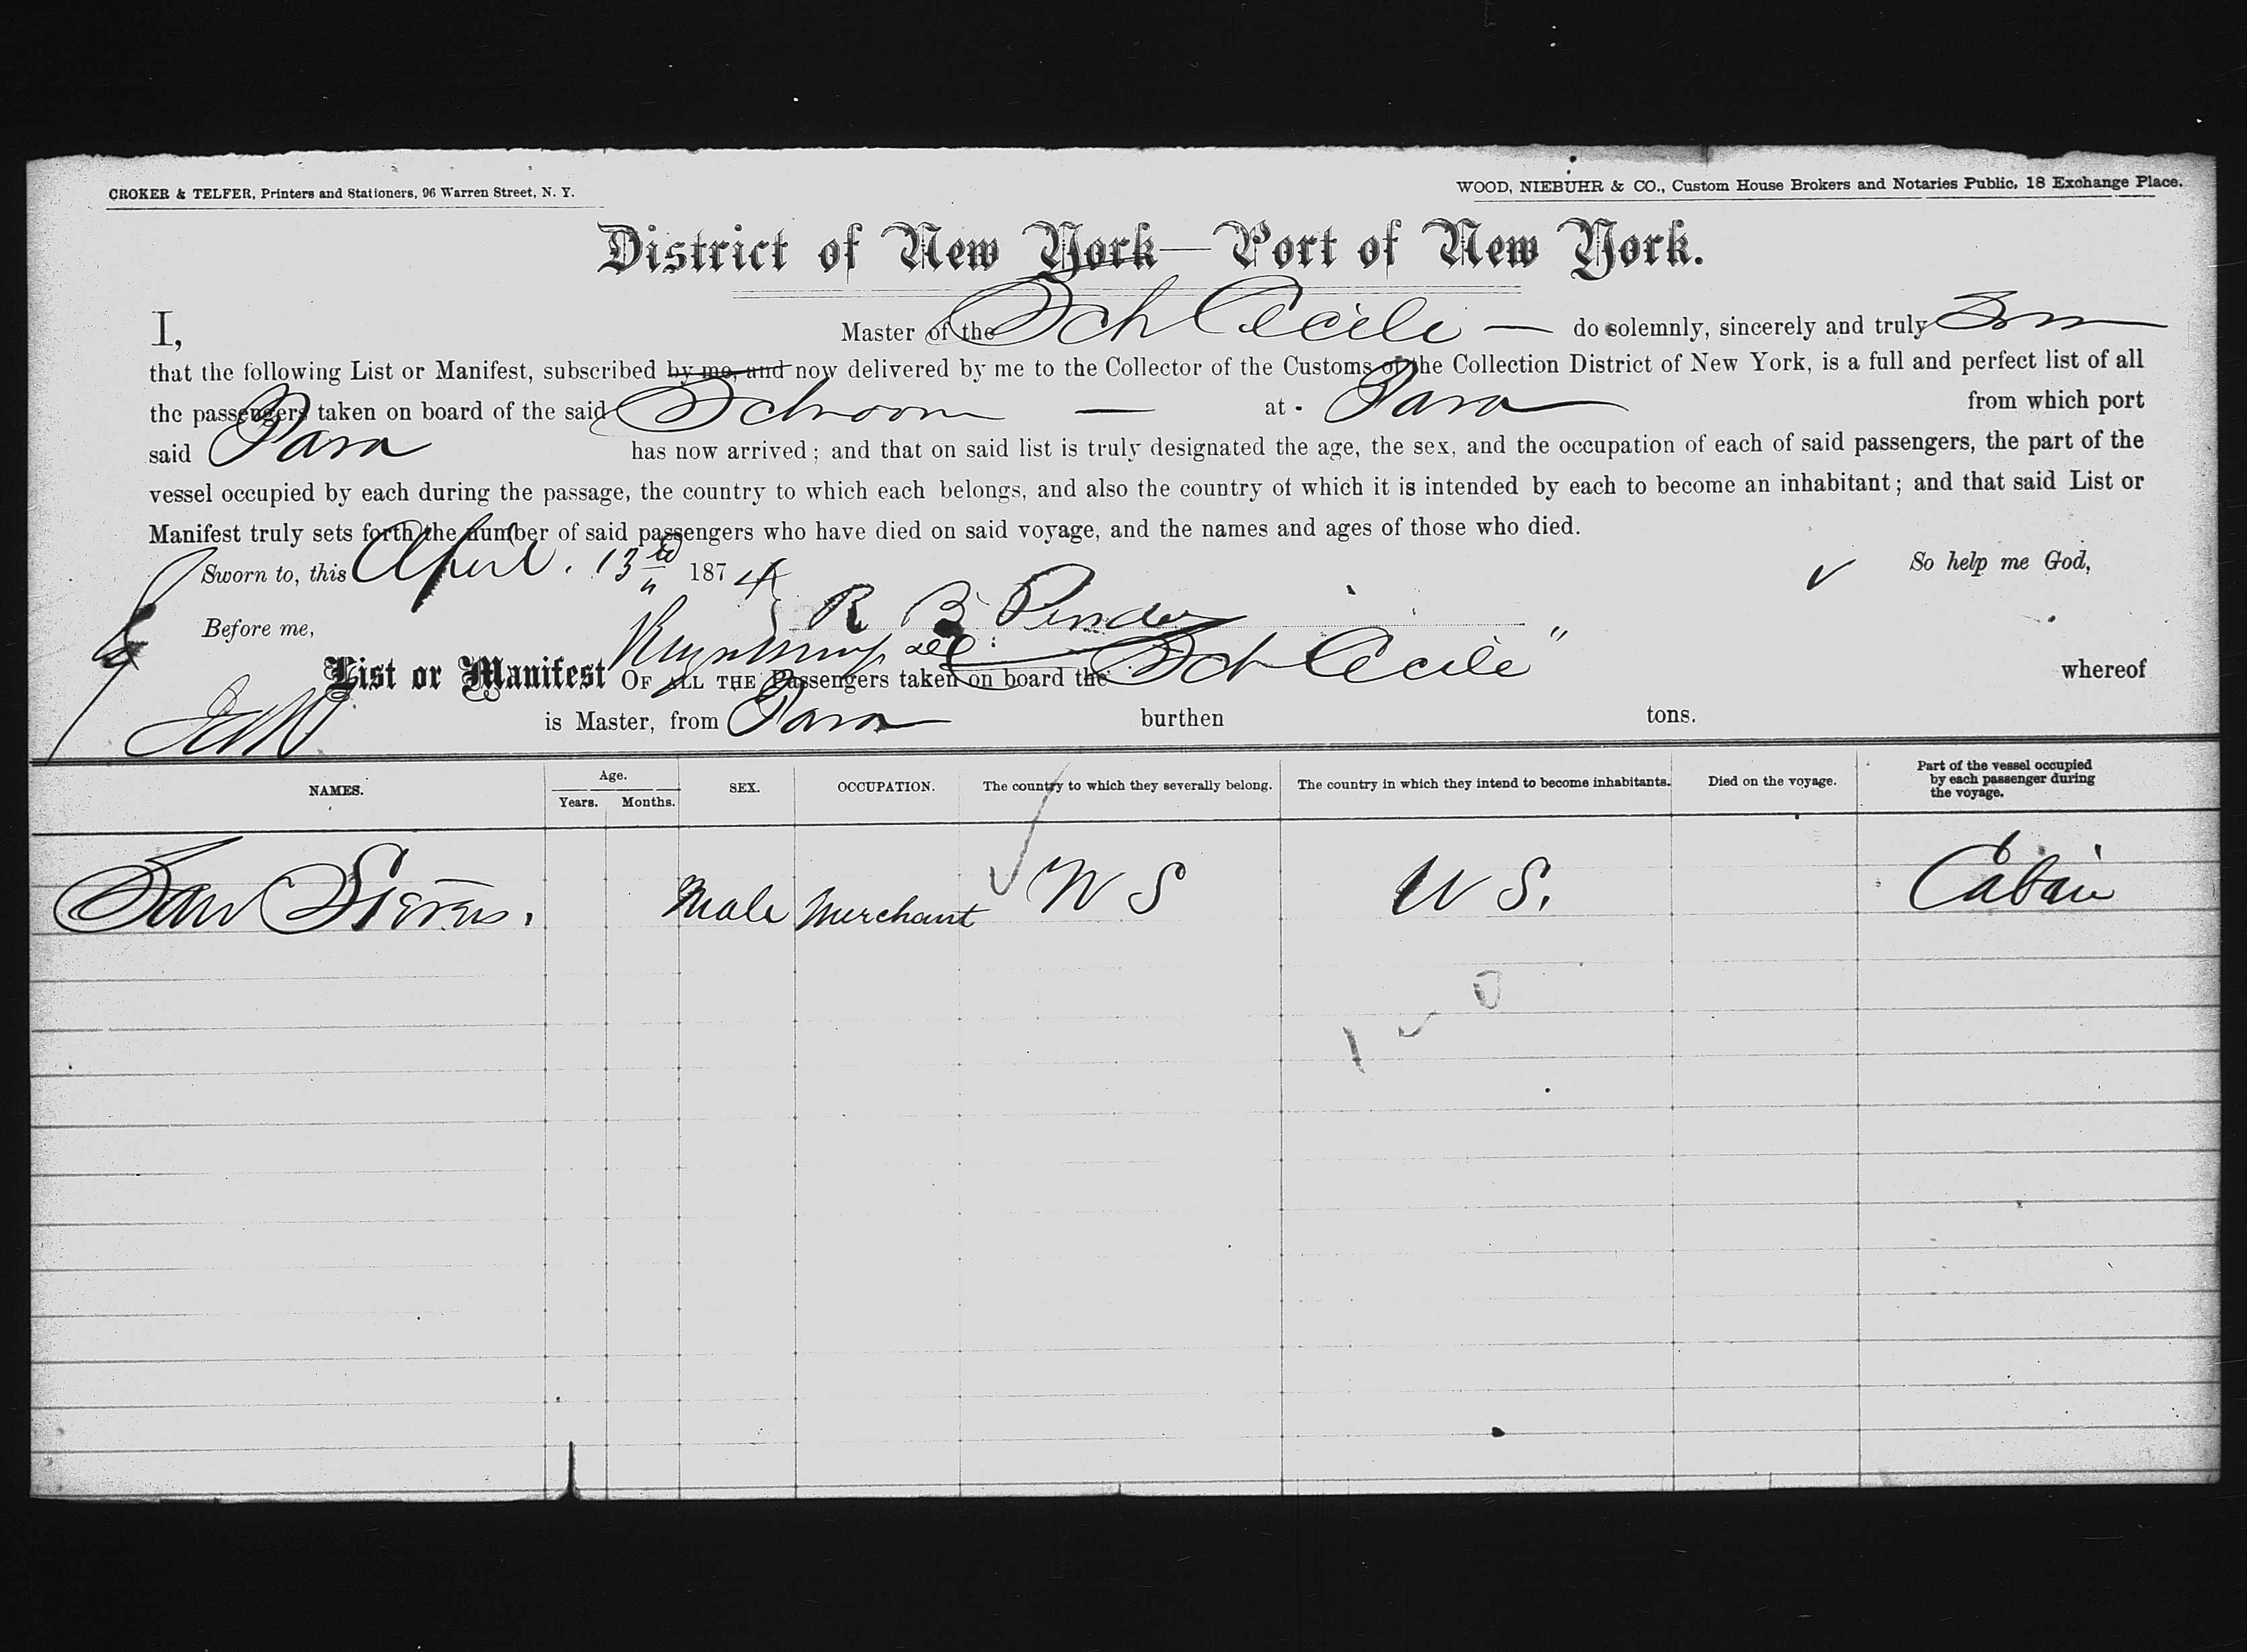 CROKER & TELFER, Printers and Stationers, 96 Warren Street, N. Y.
WOOD, NIEBUHR & CO., Custom House Brokers and Notaries Public, 18 Exchange Place.
District of New York—Port of New York.
I, Master of the Sch Cecile — do solemnly, sincerely and truly
that the following List or Manifest, subscribed by me, and now delivered by me to the Collector of the Customs of the Collection District of New York, is a full and perfect list of all
the passengers taken on board of the said Schroon — at Para from which port
said Para has now arrived; and that on said list is truly designated the age, the sex, and the occupation of each of said passengers, the part of the
vessel occupied by each during the passage, the country to which each belongs, and also the country of which it is intended by each to become an inhabitant; and that said List or
Manifest truly sets forth the number of said passengers who have died on said voyage, and the names and ages of those who died.
Sworn to, this April. 13th 1874 So help me God,
R B Pinder
Before me,
List or Manifest OF ALL THE Passengers taken on board the Sch Cecile" whereof
is Master, from Para burthen tons.
NAMES. Age. Years. Months. SEX. OCCUPATION. The country to which they severally belong. The country in which they intend to become inhabitants. Died on the voyage. Part of the vessel occupied by each passenger during the voyage.
Male Merchant U S U S. Cabin